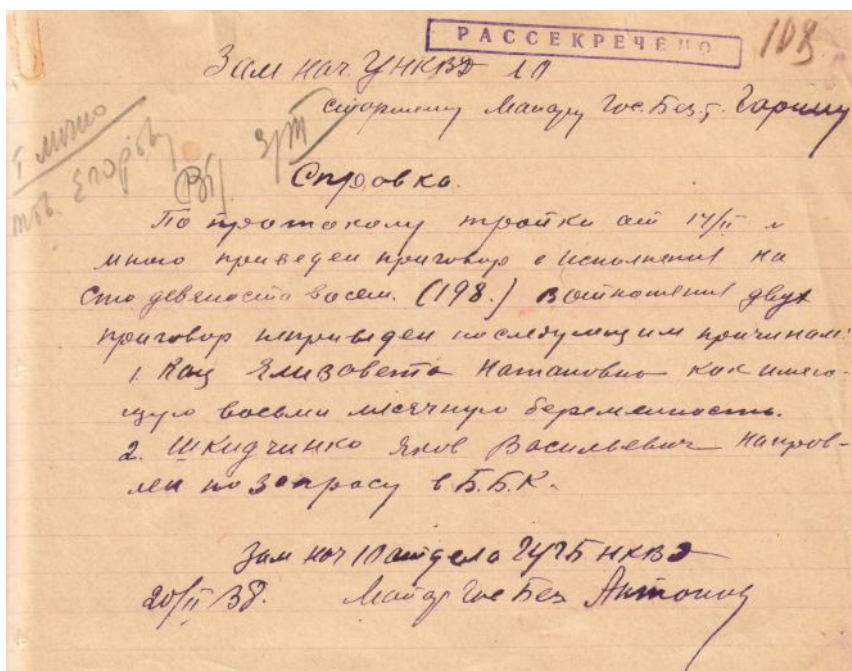 РАССЕКРЕЧЕНО
108
Зам нач УНКВД ЛО
старшему Майору Гос. Без. т. Гарину
т. Егорову
Справка.
По протоколу тройки от 14/II
мною приведен приговор в исполнения на
сто девяноста восем. (198.) вотношения двух
приговор неприведен последующим причинам:
1. Кац Елизавета Натановна как имею-
щую восьми месячную беременность.
2. Шкидчинко Яков Васильевич направ-
лен по запросу в Б.Б.К.
Зам нач 10 отдела ГУГБ НКВД
20/II 38. Майор Гос Без Антонов